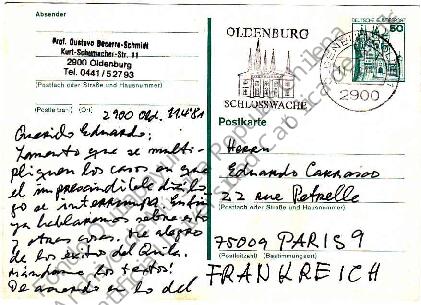 Absender
Prof. Gustavo Becerra-Schmidt
Kurt-Schumacher-Str. 11
2900 Oldenburg
Tel. 0441/52793
(Postfach oder Straße und Hausnummer)
(Postleitzahl) (Ort)
2900 Old. 11.4.81
Querido Eduardo:
Lamento que se multi-
pliquen los casos en que
el imprescindible diálo-
go se interrumpa.
ya hablaremos sobre esto
y otras cosas. Me alegro
de los éxitos del Quila.
Mándame los textos!
De acuerdo en lo del
OLDENBURG
SCHLOSSWACHE
DEUTSCHE BUNDESPOST
50
2900
Postkarte
Herrn
Eduardo Carrasco
22 rue Petrelle
(Postfach oder Straße und Hausnummer)
75009 PARIS 9
(Postleitzahl) (Bestimmungsort)
FRANKREICH